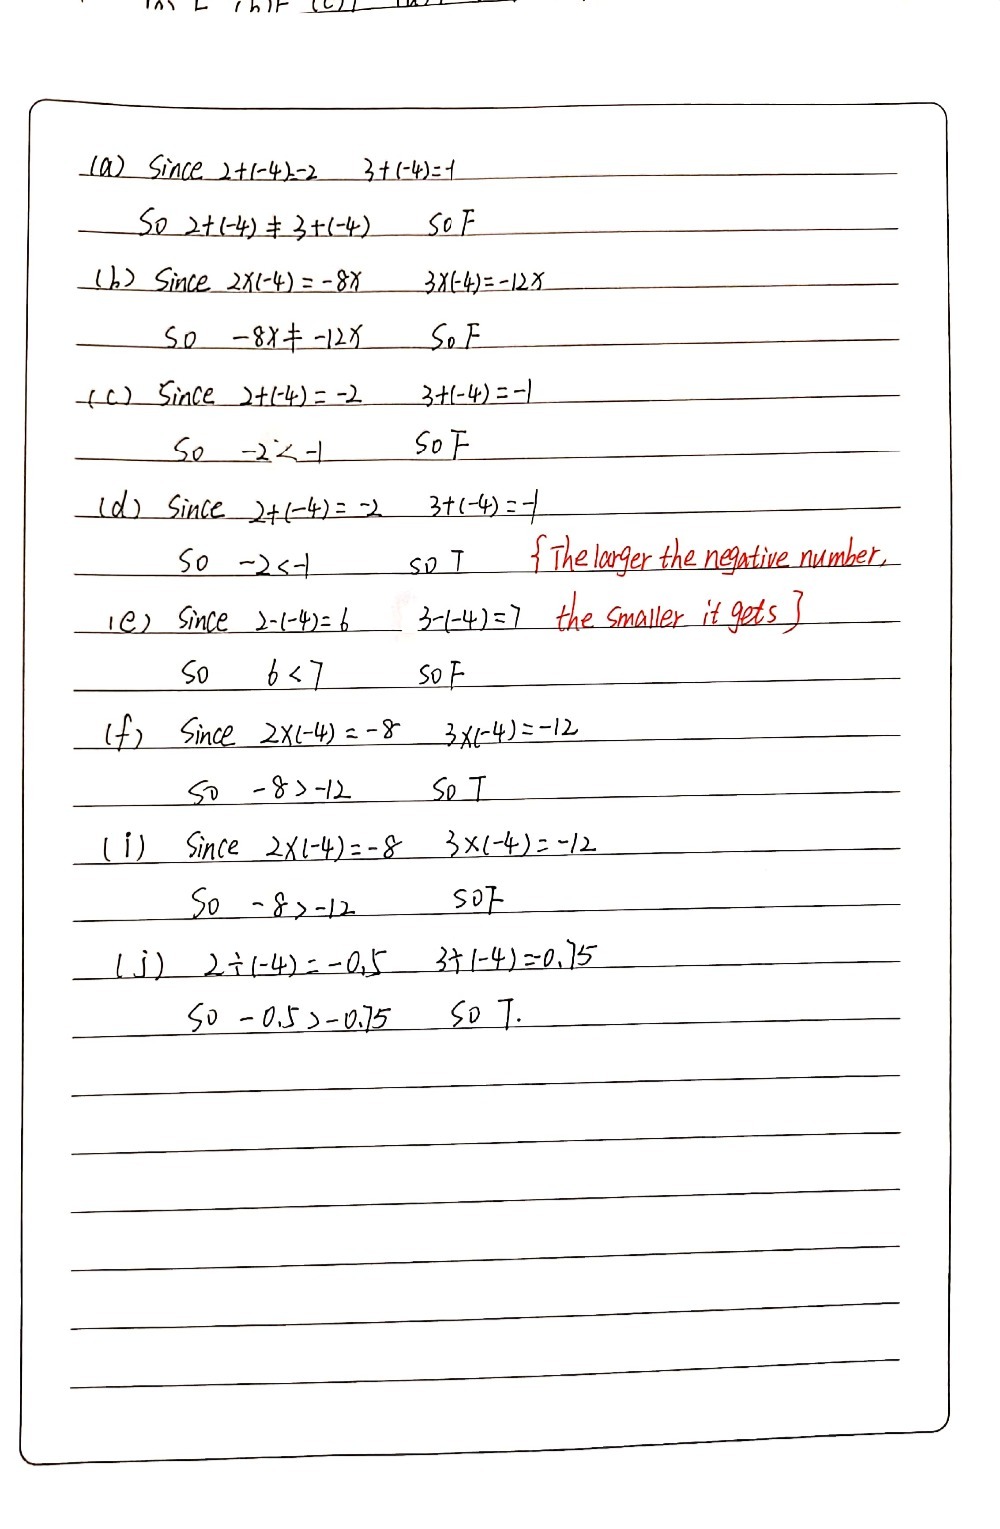 (a) Since 2+(-4)=-2 3+(-4)=-1
So 2+(-4) ≠ 3+(-4) So F
(b) Since 2×(-4) = -8x 3×(-4)=-12x
So -8x ≠ -12x So F
(c) Since 2+(-4) = -2 3+(-4) = -1
So -2 < -1 So F
(d) Since 2+(-4) = -2 3+(-4) = -1
So -2<-1 so T {The larger the negative number,
(e) Since 2-(-4)=6 3-(-4)=7 the smaller it gets}
So 6 < 7 so F
(f) Since 2×(-4) = -8 3×(-4) = -12
So -8 > -12 So T
(i) Since 2×(-4) = -8 3×(-4) = -12
So -8 > -12 So F
(j) 2÷(-4) = -0.5 3÷(-4) =0.75
So -0.5 > -0.75 So T.